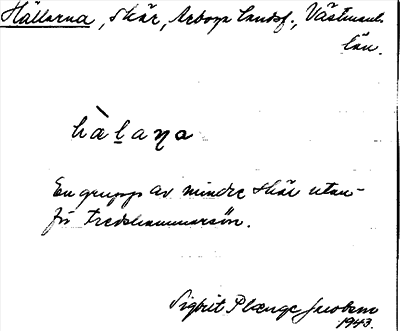 Hällarna, skär, Arboga landsf., Västmanl.
län.
hàḷaṇa
En grupp av mindre skär utan-
för Fredshammarsön.
Sigbrit Plænge Jacobson
1943.